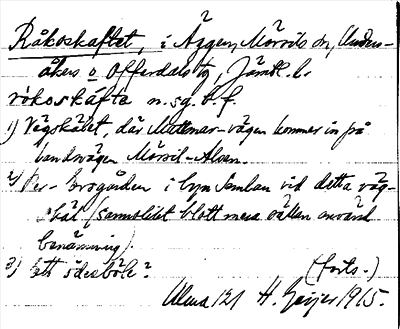 Råkoskaftet, i Äggen, Mörsils sn, Unders-
åkers o. Offerdals tg, Jämtl. l.
rókoskáfte n. sg. b. f.
1) Vägskälet, där Mattmar-vägen kommer in på
landsvägen Mörsil-Alsen.
2) Per- brogården i byn Semlan vid detta väg-
skäl (sannolikt blott mera sällan använd
benämning).
3) Ett ödesböle?
(forts.)
Ulma 121 H. Geijer 1915.